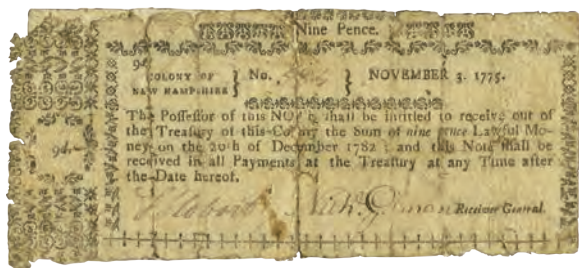 Nine Pence.
9d.
COLONY OF
NEW HAMPSHIRE } No. } NOVEMBER 3. 1775.
The Poſſeſſor of this NOTE ſhall be intitled to receive out of
the Treaſury of this Colony the Sum of nine pence Lawful Mo-
ney on the 20th of December 1782 ; and this Note ſhall be
received in all Payments at the Treaſury at any Time after
the Date hereof.
9d.
Nichs. Gilman Receiver General.